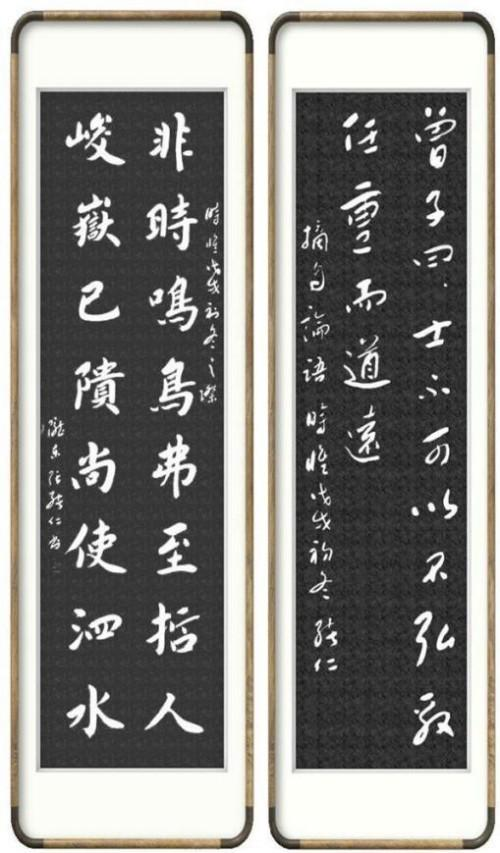 曾子曰:士不可以不弘毅
任重而道遠
摘自論語 時惟戊戌初冬 能仁
時惟戊戌初冬之際
非時鳴鳥弗至哲人
峻嶽已隤尚使泗水
隴東張能仁書